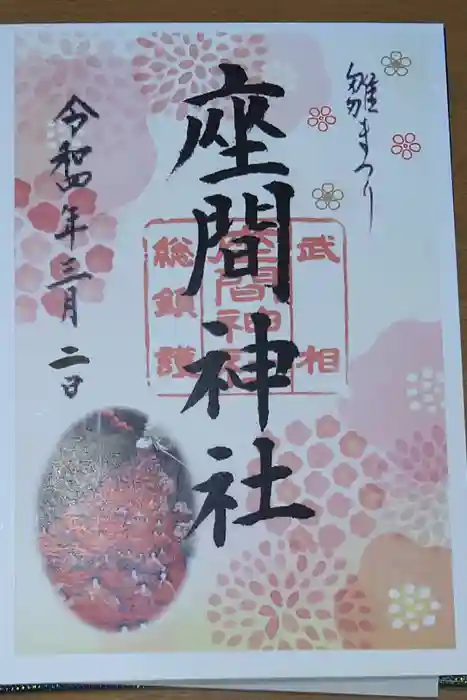 雛まつり
座間神社
令和四年三月二日
武相
座間神社
総鎮護